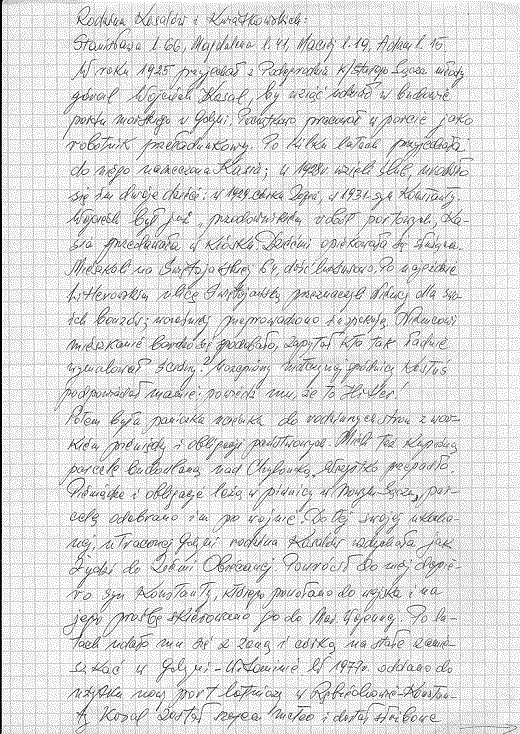 Rodzina Kosalów i Kwiatkowskich:
Stanisława l. 66, Magdalena l. 41, Maciej l. 19, Adam l. 15
W roku 1925 przyjechał z Podegrodzia k/Starego Sącza młody
góral Wojciech Kosal, by wziąć udział w budowie
portu morskiego w Gdyni. Początkowo pracował w porcie jako
robotnik przeładunkowy. Po kilku latach przyjechała
do niego narzeczona Kasia; w 1928r wzięli ślub, urodziło
się im dwoje dzieci: w 1929 córka Zofia, w 1931 syn Konstanty.
Wojciech był już "przodownikiem robót portowych, Ka-
sia sprzedawała w kiosku. Dziećmi opiekowała się służąca.
Mieszkali na Świętojańskiej 64, dość luksusowo. Po najeździe
hitlerowskim ulicę Świętojańską przeznaczyli Niemcy dla swo-
ich bonzów; Niemcowi
mieszkanie bardzo się podobało, zapytał kto tak ładnie
wymalował ściany? matczynej spódnicy Kostuś
podpowiedział mamie: powiedz mu, że to Hitler!
Potem była paniczna ucieczka do rodzinnych stron z wor-
kiem pieniędzy i obligacji państwowych. Mieli też kupioną
parcelę budowlaną nad Chylonką. Wszystko przepadło.
Pieniądze i obligacje leżą w piwnicy w Nowym Sączu, par-
celę odebrano im po wojnie. Do tej swojej ukocha-
nej, utraconej Gdyni rodzina Kosalów wzdychała jak
Żydzi do Ziemi Obiecanej. Powrócił do niej dopie-
ro syn Konstanty, którego powołano do wojska i na
jego prośbę skierowano go do Mar. Wojennej. Po la-
tach udało mu się z żoną i córką na stałe zamie-
szkać w Gdyni - Witominie. W 1977r. oddano do
użytku nowy port lotniczy w Rębiechowie. Konstan-
ty Kosal został szefem meteo i dostał służbowe